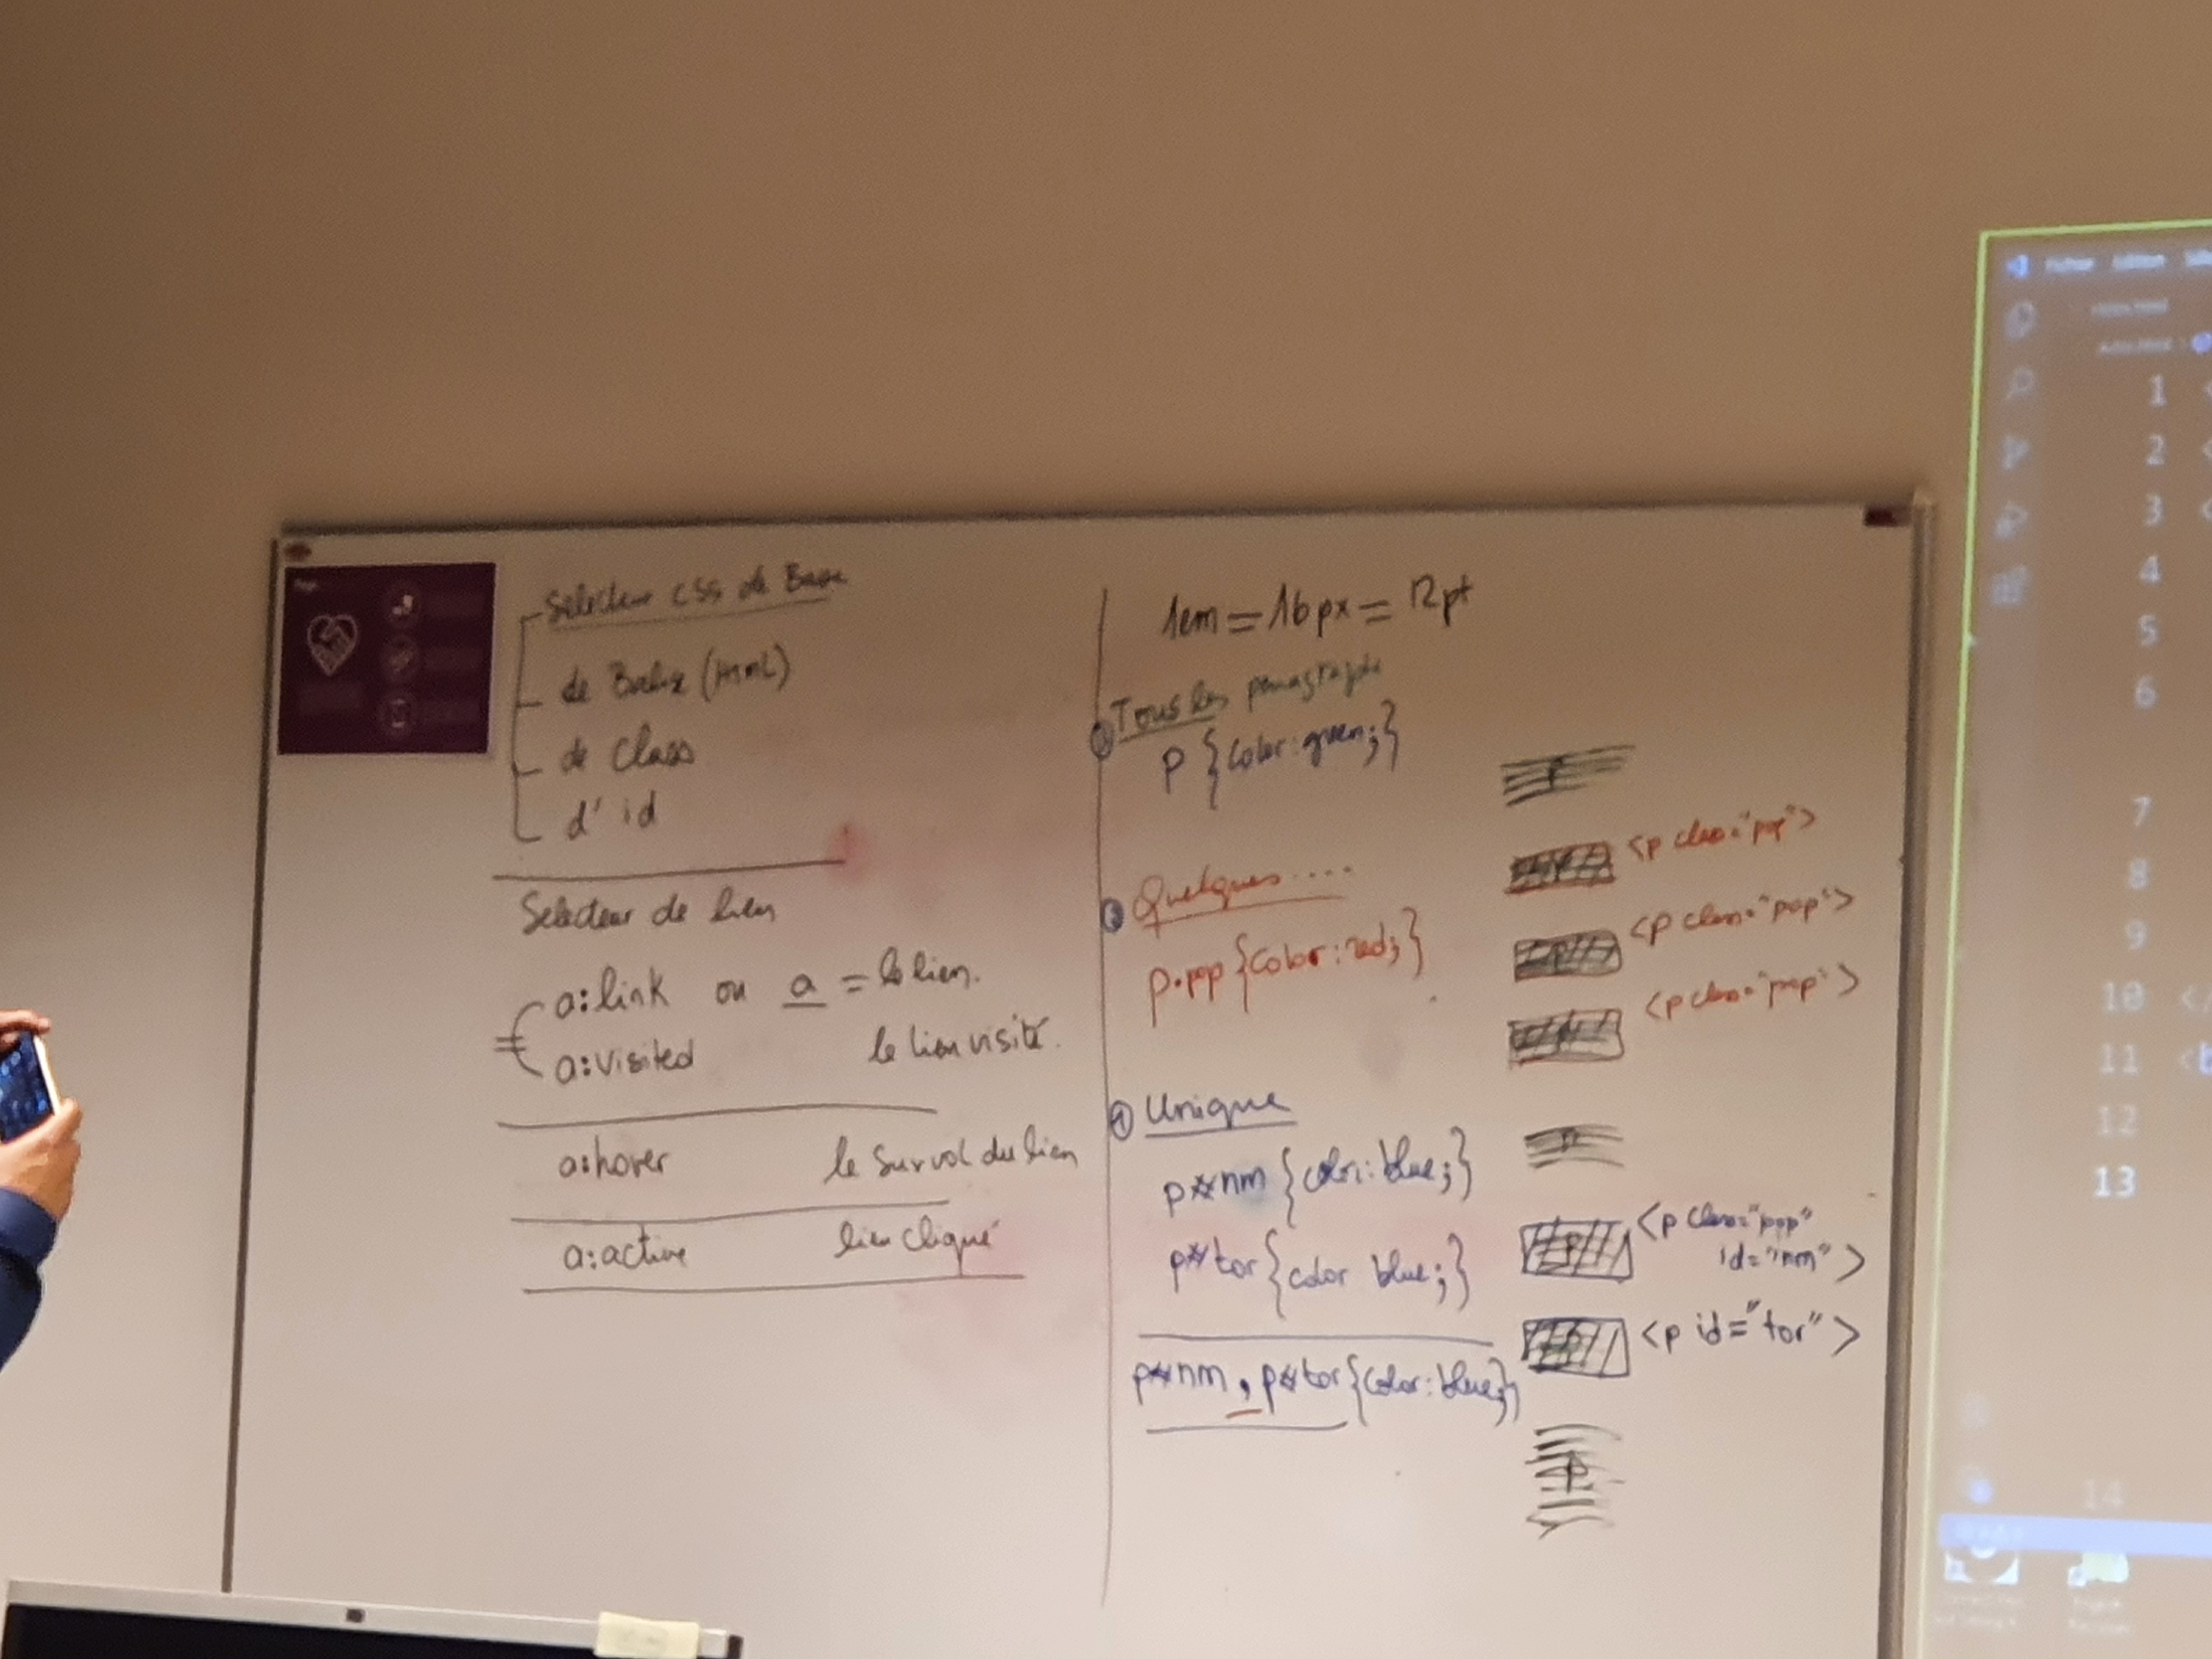 Sélecteur CSS de Base
de Balise (HTML)
de Class
d'id
Selecteur de lien
a:link ou a = le lien.
a:visited le lien visité.
a:hover le survol du lien
a:active lien cliqué
1em = 16px = 12pt
Tous les paragraphe
p {color:green;}
Quelques....
p.pop {color:red;}
Unique
p#nm {color:blue;}
p#tor {color blue;}
p#nm, p#tor {color:blue;}
P
<p class="pop">
<p class="pop">
<p class="pop">
<p class="pop"
id="nm">
<p id="tor">
P
Fichier Edition
1 <
2 <
3 <
4
5
6
7
8
9
10 </
11 <b
12
13
14